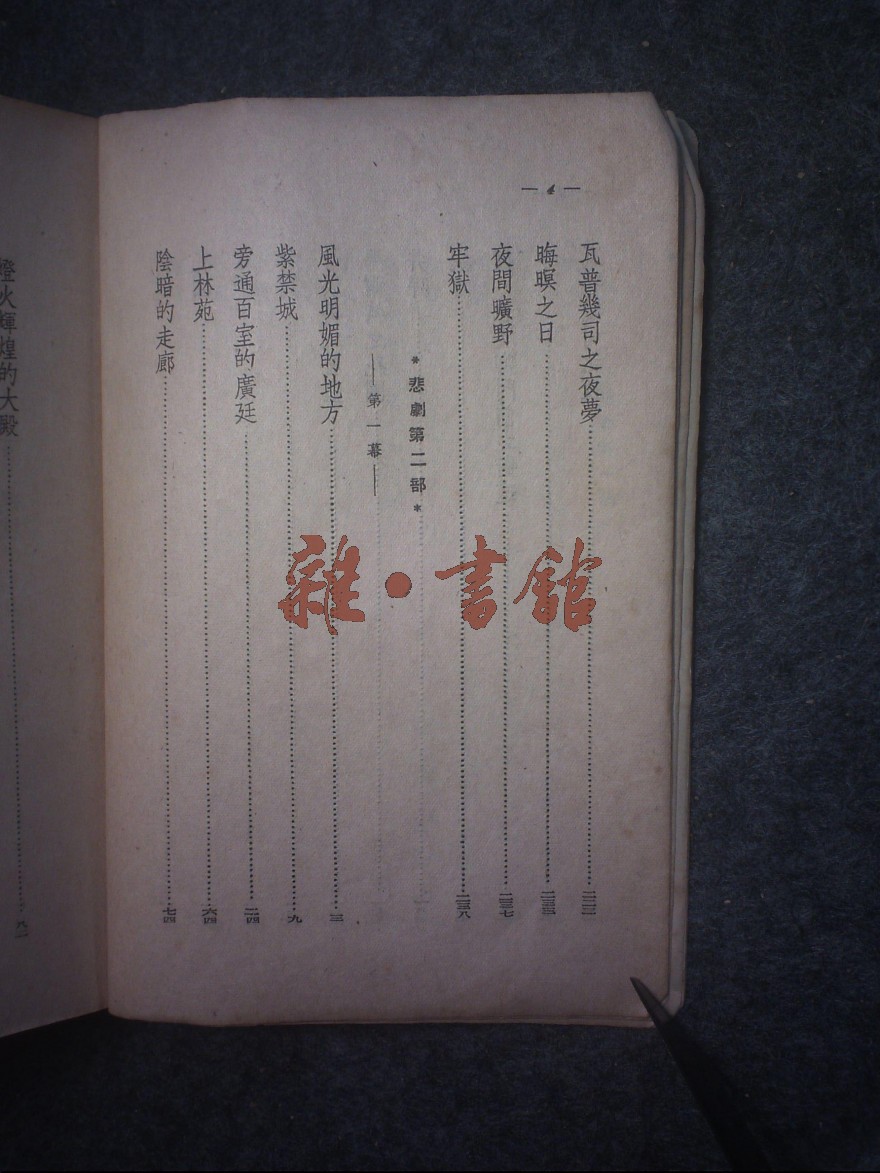 — 4 —
瓦普幾司之夜夢……二二二
晦暝之日……二三三
夜間曠野……二三七
牢獄……二三八
*悲劇第二部*
——第一幕——
風光明媚的地方……三
紫禁城……九
旁通百室的廣廷……二四
上林苑……六四
陰暗的走廊……七四
燈火輝煌的大殿……八一
雜·書館